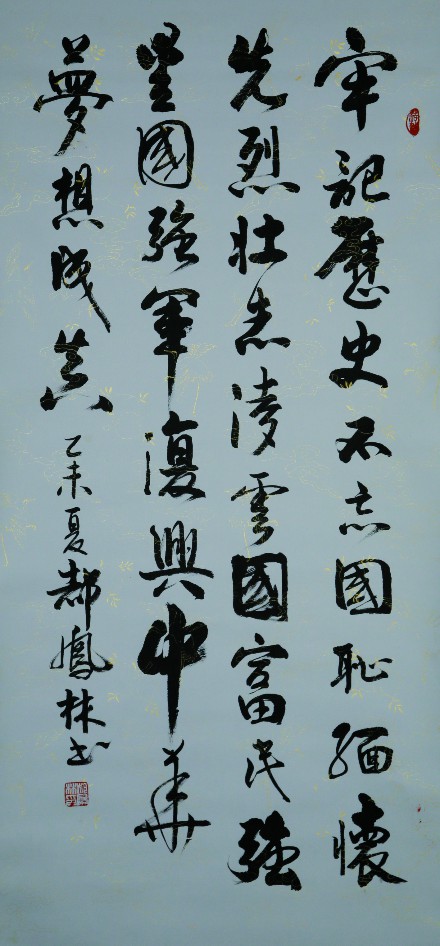 牢記歷史不忘國耻緬懷
先烈壯志凌雲國富民強
國強軍復興中華
夢想成真乙未夏郝鳳林書